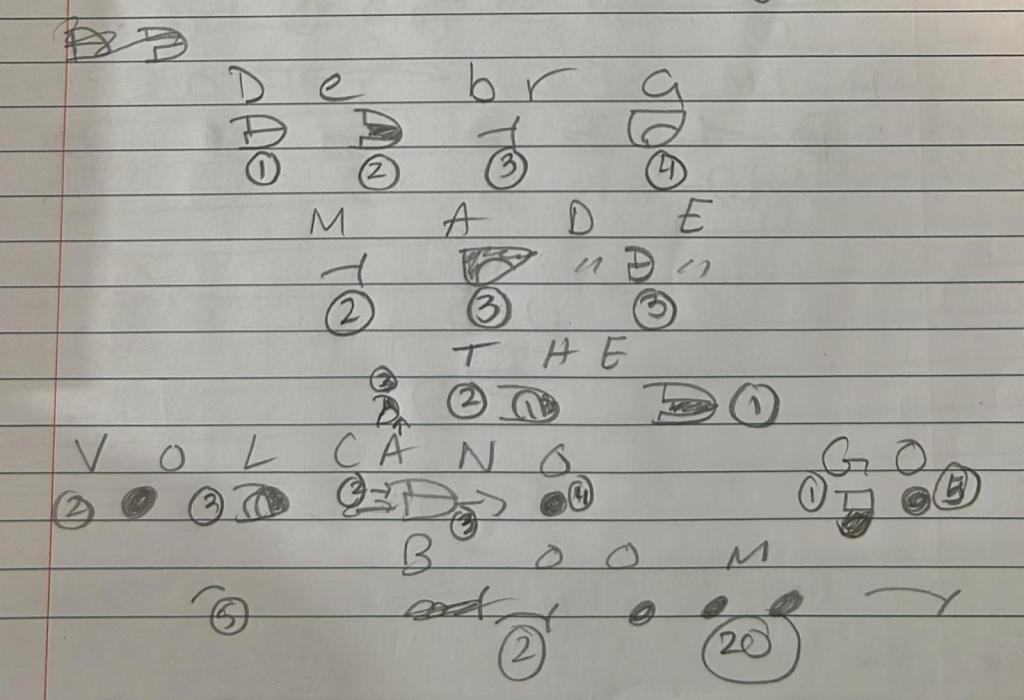 D e b r G
1 2 3 4
M A D E
" "
2 3 3
T H E
3
2 1
V O L C A N O G O
2 3 3 3 4 1
B O O M
5 2 20